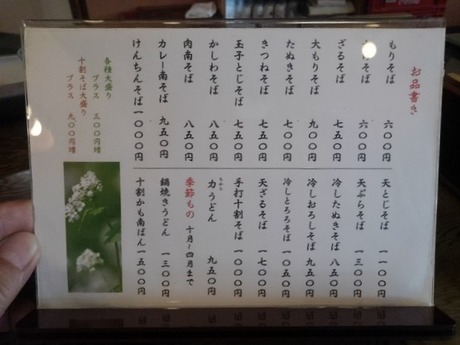 お品書き
もりそば 六〇〇円
そば 六〇〇円
ざるそば 七五〇円
大もりそば 九〇〇円
たぬきそば 七〇〇円
きつねそば 七五〇円
玉子とじそば 七五〇円
かしわそば 八五〇円
肉南そば 八五〇円
カレー南そば 九五〇円
けんちんそば 一〇〇〇円
天とじそば 一一〇〇円
天ぷらそば 一三〇〇円
冷したぬきそば 八五〇円
冷しおろしそば 九五〇円
冷しとろろそば 一〇五〇円
天ざるそば 一七〇〇円
手打十割そば 一〇〇〇円
力うどん 九五〇円
ちから
季節もの 十月〜四月まで
鍋焼きうどん 一三〇〇円
十割かも南ばん 一五〇〇円
各種大盛り
プラス 三〇〇円増
十割そば大盛り
プラス 九〇〇円増